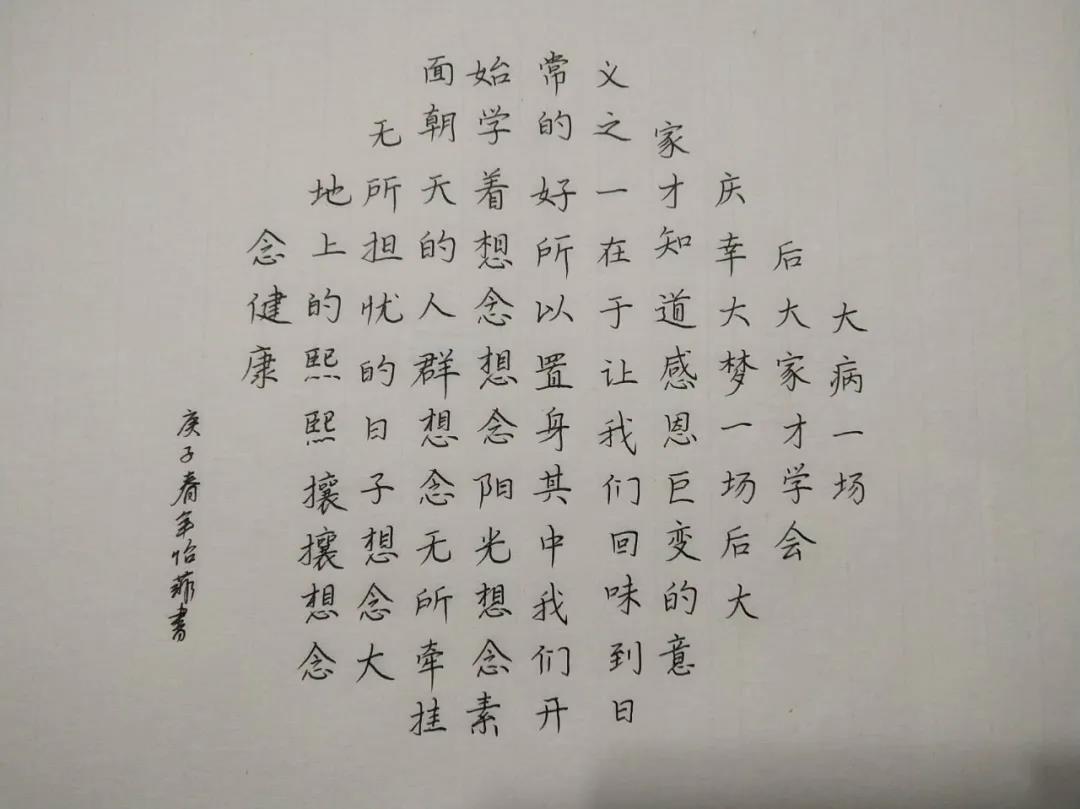 大病一场
后大家才学会
庆幸大梦一场后大
家才知道感恩巨变的意
义之一在于让我们回味到日
常的好所以置身其中我们开
始学着想念想念阳光想念素
面朝天的人群想念无所牵挂
无所担忧的日子想念大
地上的熙熙攘攘想念
念健康
庚子春年怡菲书